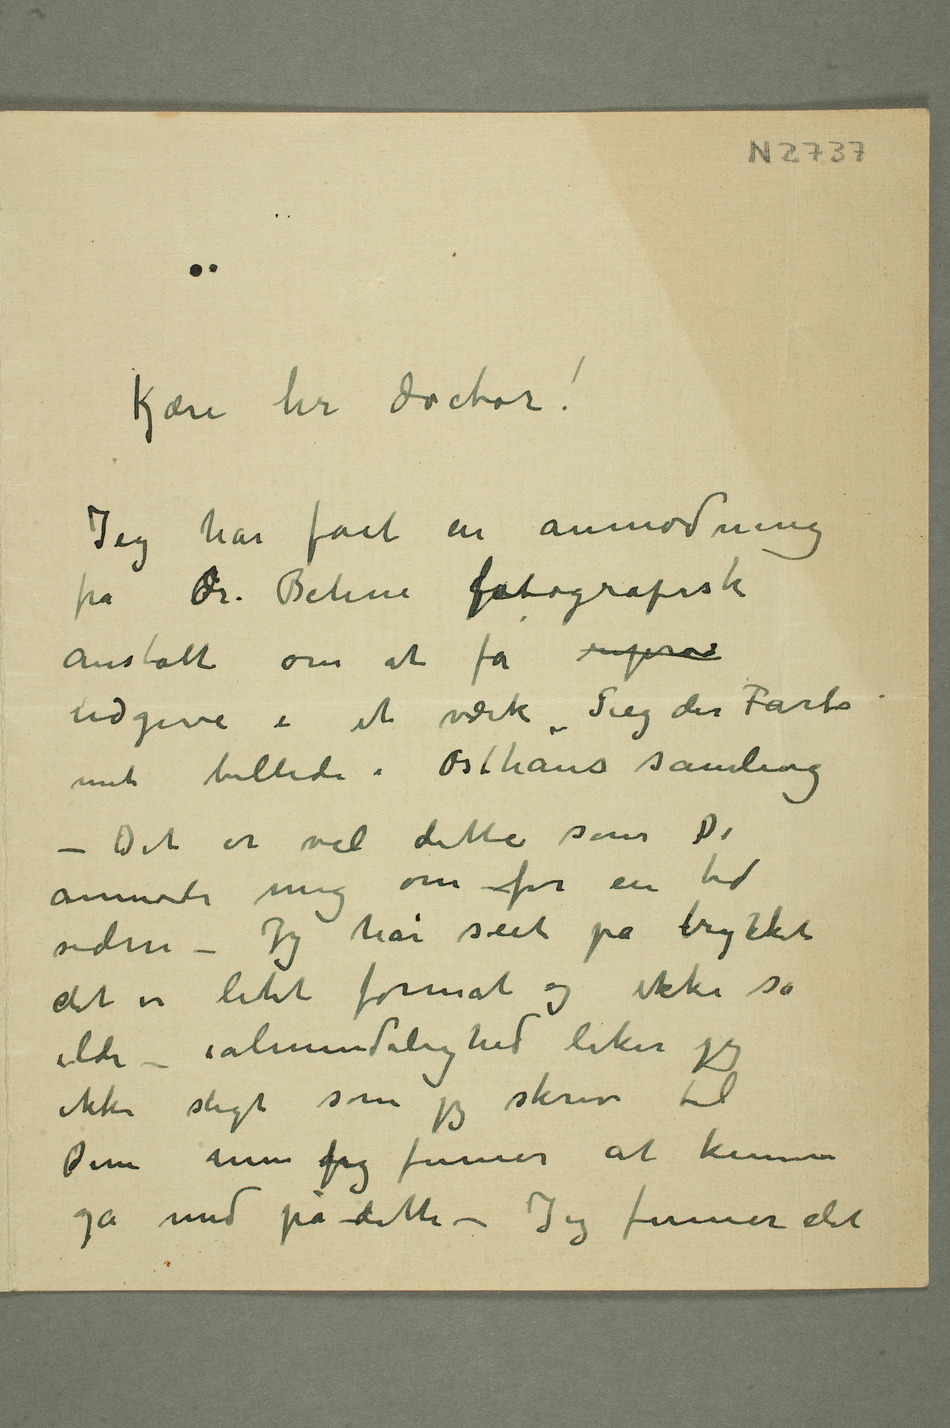 N 2737
Kjære hr doctor!
Jeg har fåt en anmodning
fra Dr. Behne fotografisk
anstalt om at få repro
udgive i et værk „Sieg der Farb
mit billede i Osthaus samling
– Det er vel dette som De
anmode mig om for en tid
siden – Jeg har seet på trykket
det er litet format og ikke så
ilde – ialmindelighed liker jeg
ikke sligt som jeg skrev til
Dem men jeg finner at kunne
gå med på dette – Jeg finner det